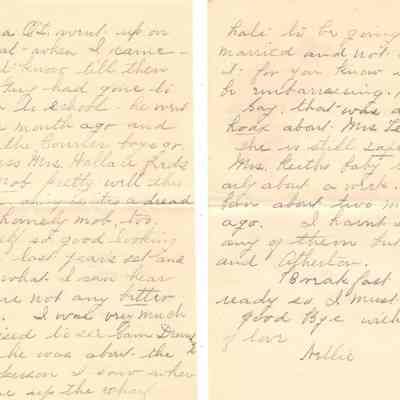 a C.I. went up on
at - when I came -
know till then
had gone to
school - he went
a month ago and
the Courier boys go.
Mrs. Wallace finds
mob pretty well this
only is it's a dread
homely mob, too,
so good looking
last years set and
what I can hear
are not any better
. I was very much
to see Sam
he was about the
person I saw when
up the wharf
hate to be going
married and not
it - for you know
be embarrassing.
Say, that was a
hoax about Mrs
She is still
Mrs. Keiths baby
only about a week.
born about two m
ago. I havnt s
any of them but
and Atherton.
Breakfast
ready so I must
good bye with
of love
Nellie